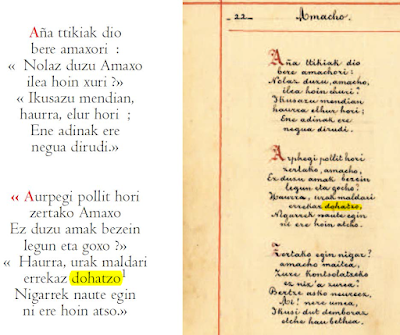 Aña ttikiak dio
bere amaxori :
« Nolaz duzu Amaxo
ilea hoin xuri ?»
« Ikusazu mendian,
haurra, elur hori ;
Ene adinak ere
negua dirudi.»
« Aurpegi pollit hori
zertako Amaxo
Ez duzu amak bezein
legun eta goxo ?»
« Haurra, urak maldari
errekaz dohatzo¹
Nigarrek naute egin
ni ere hoin atso.»
- 22 - Amacho.
Aña ttikiak dio
bere amachori :
Nolaz duzu, amacho,
ilea hoin churi ?
Ikusazu mendian
haurra elhur hori ;
Ene adinak ere
negua dirudi.
Arphegi pollit hori
zertako, amacho,
Ez duzu amak bezein
legun eta gocho ?
Haurra, urak maldari
errekaz dohatzo,
Nigarrek naute egin
ni ere hoin atcho.
Zertako egin nigar ?
amacho maitea,
Zure kontsolatzeko
ez niz'a zurea ?
Bertze asko neureez,
Ai ! nere umea,
Ikusi dut demboraz
etche hau bethea.